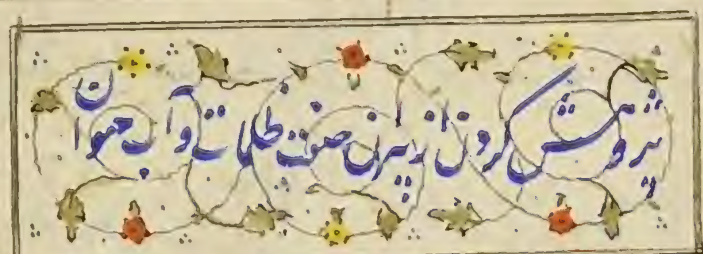 پژوهش کردن از پیران صفت ظلمات و آب حیوان